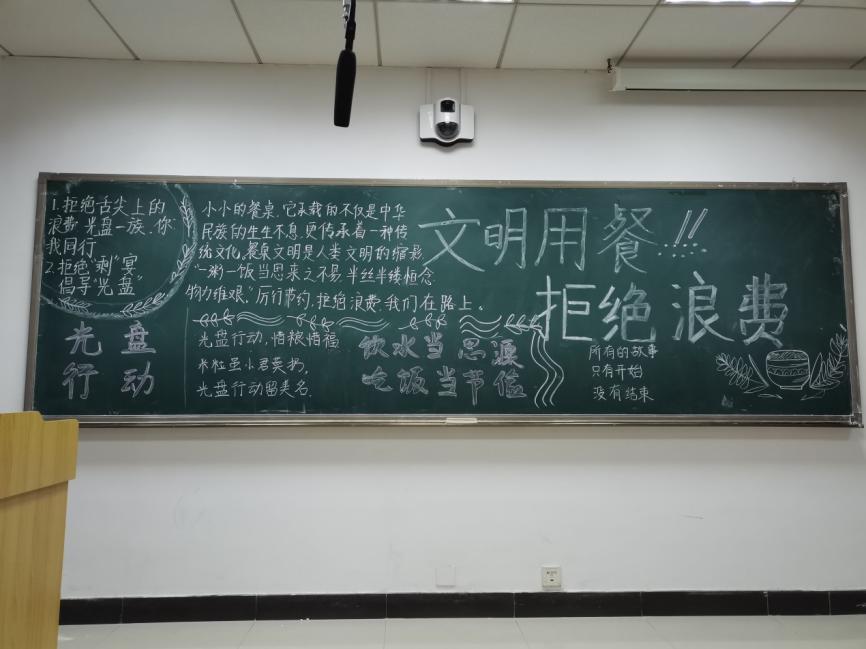 1.拒绝舌尖上的
浪费,光盘一族,你
我同行
2.拒绝"剩"宴
倡导"光盘"
光盘
行动
小小的餐桌,它承载的不仅是中华
民族的生生不息,更传承着一种传
统文化,餐桌文明是人类文明的缩影,
"一粥一饭当思来之不易,半丝半缕恒念
物力维艰."厉行节约,拒绝浪费,我们在路上。
光盘行动,惜粮惜福
米粒虽小君莫扔,
光盘行动留美名.
饮水当思源
吃饭当节俭
文明用餐!!
拒绝浪费
所有的故事
只有开始
没有结束